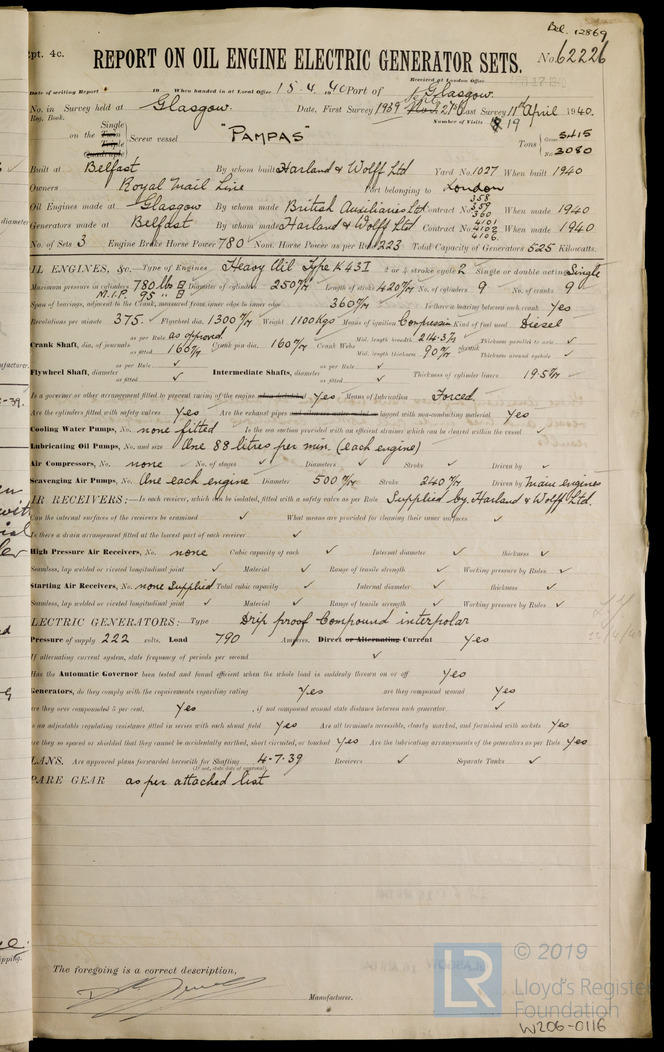 Bel. 12869
Rpt. 4c.
REPORT ON OIL ENGINE ELECTRIC GENERATOR SETS. No. 62226
Received at London Office
Date of writing Report 19 When handed in at Local Office 15.4.1940 Port of Glasgow
No. in Survey held at Glasgow. Date, First Survey 1939 Last Survey 11th April 1940.
Reg. Book. Number of Visits 19
on the Single Twin Triple Quadruple Screw vessel "PAMPAS" Tons Gross 5415 Net 3080
Built at Belfast By whom built Harland & Wolff Ltd Yard No. 1027 When built 1940
Owners Royal Mail Line Port belonging to London
Oil Engines made at Glasgow By whom made British Auxiliaries Ltd Contract No. 358 359 360 When made 1940
Generators made at Belfast By whom made Harland & Wolff Ltd Contract No. 4101 4102 4106. When made 1940
No. of Sets 3 Engine Brake Horse Power 780 Nom. Horse Power as per Rule 223 Total Capacity of Generators 525 Kilowatts.
OIL ENGINES, &c. Type of Engines Heavy Oil Type K43I 2 or 4 stroke cycle 2 Single or double acting Single
Maximum pressure in cylinders 780 lb Diameter of cylinders 250 m/m Length of stroke 420 m/m No. of cylinders 9 No. of cranks 9
M.I.P. 95 "
Span of bearings, adjacent to the Crank, measured from inner edge to inner edge 360 m/m Is there a bearing between each crank Yes
Revolutions per minute 375. Flywheel dia. 1300 m/m Weight 1100 Kgs Means of ignition Compression Kind of fuel used Diesel
Crank Shaft, dia. of journals as per Rule as approved as fitted 160 m/m Crank pin dia. 160 m/m Crank Webs Mid. length breadth 214.3 m/m Mid. length thickness 90 m/m shrunk Thickness parallel to axis ✓ Thickness around eyehole ✓
Flywheel Shaft, diameter as per Rule ✓ as fitted ✓ Intermediate Shafts, diameter as per Rule ✓ as fitted ✓ Thickness of cylinder liners 19.5 m/m
Is a governor or other arrangement fitted to prevent racing of the engine Yes Means of lubrication Forced
Are the cylinders fitted with safety valves Yes Are the exhaust pipes lagged with non-conducting material Yes
Cooling Water Pumps, No. none fitted Is the sea suction provided with an efficient strainer which can be cleared within the vessel ✓
Lubricating Oil Pumps, No. and size One 88 litres per min. (each engine)
Air Compressors, No. none No. of stages ✓ Diameters ✓ Stroke ✓ Driven by ✓
Scavenging Air Pumps, No. One each engine Diameter 500 m/m Stroke 240 m/m Driven by Main engines
AIR RECEIVERS:—Is each receiver, which can be isolated, fitted with a safety valve as per Rule Supplied by Harland & Wolff Ltd.
Can the internal surfaces of the receivers be examined ✓ What means are provided for cleaning their inner surfaces ✓
Is there a drain arrangement fitted at the lowest part of each receiver ✓
High Pressure Air Receivers, No. none Cubic capacity of each ✓ Internal diameter ✓ thickness ✓
Seamless, lap welded or riveted longitudinal joint ✓ Material ✓ Range of tensile strength ✓ Working pressure by Rules ✓
Starting Air Receivers, No. none Supplied Total cubic capacity ✓ Internal diameter ✓ thickness ✓
Seamless, lap welded or riveted longitudinal joint ✓ Material ✓ Range of tensile strength ✓ Working pressure by Rules ✓
ELECTRIC GENERATORS:— Type Drip proof Compound interpolar
Pressure of supply 222 volts. Load 790 Amperes. Direct or Alternating Current Yes
If alternating current system, state frequency of periods per second ✓
Has the Automatic Governor been tested and found efficient when the whole load is suddenly thrown on or off Yes
Generators, do they comply with the requirements regarding rating Yes are they compound wound Yes
are they over compounded 5 per cent. Yes , if not compound wound state distance between each generator ✓
is an adjustable regulating resistance fitted in series with each shunt field Yes Are all terminals accessible, clearly marked, and furnished with sockets Yes
Are they so spaced or shielded that they cannot be accidentally earthed, short circuited, or touched Yes Are the lubricating arrangements of the generators as per Rule Yes
PLANS. Are approved plans forwarded herewith for Shafting 4.7.39 Receivers ✓ Separate Tanks ✓
(If not, state date of approval)
SPARE GEAR as per attached list
The foregoing is a correct description,
Manufacturer.
LR
© 2019
Lloyd's Register
Foundation
W206-0116